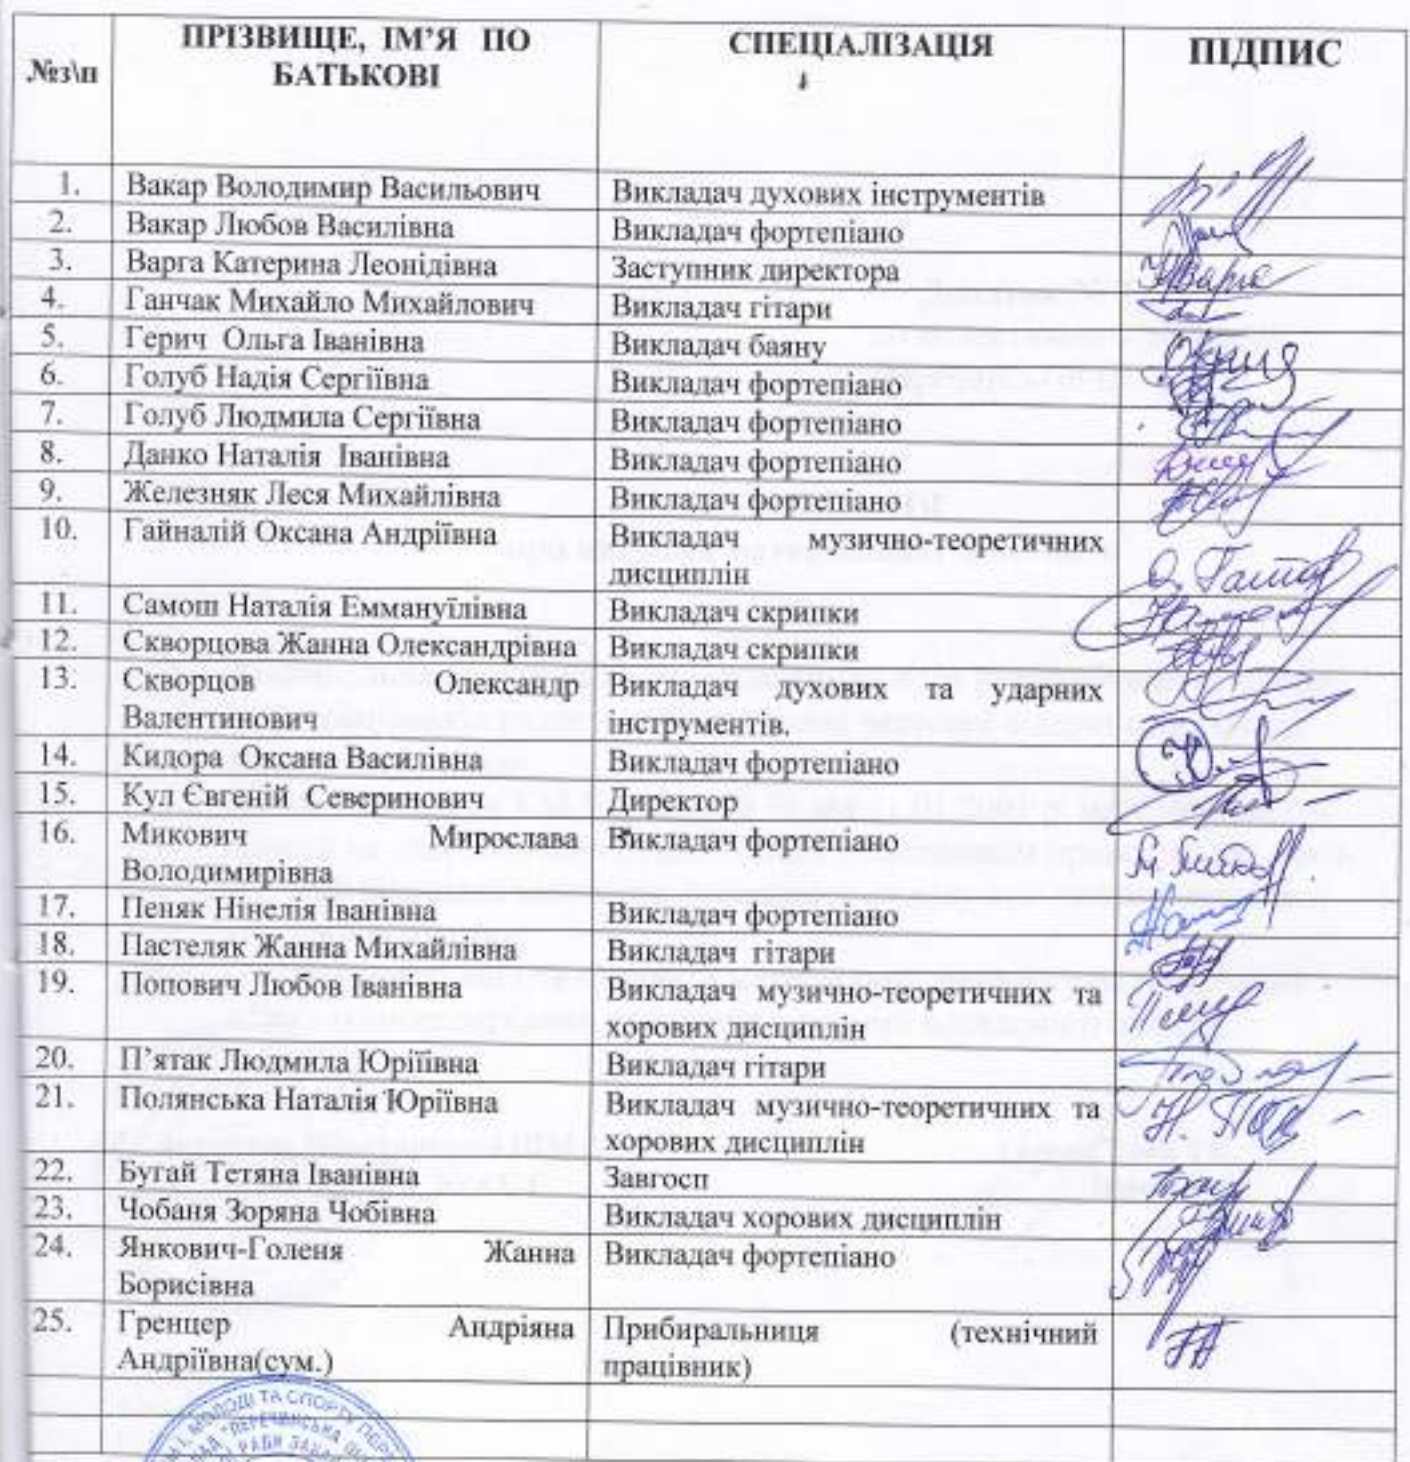 №з\п ПРІЗВИЩЕ, ІМ’Я ПО БАТЬКОВІ СПЕЦІАЛІЗАЦІЯ ПІДПИС
1. Вакар Володимир Васильович Викладач духових інструментів
2. Вакар Любов Василівна Викладач фортепіано
3. Варга Катерина Леонідівна Заступник директора
4. Ганчак Михайло Михайлович Викладач гітари
5. Герич Ольга Іванівна Викладач баяну
6. Голуб Надія Сергіївна Викладач фортепіано
7. Голуб Людмила Сергіївна Викладач фортепіано
8. Данко Наталія Іванівна Викладач фортепіано
9. Железняк Леся Михайлівна Викладач фортепіано
10. Гайналій Оксана Андріївна Викладач музично-теоретичних
дисциплін
11. Самош Наталія Еммануїлівна Викладач скрипки
12. Скворцова Жанна Олександрівна Викладач скрипки
13. Скворцов Олександр Викладач духових та ударних
Валентинович інструментів.
14. Кидора Оксана Василівна Викладач фортепіано
15. Кул Євгеній Северинович Директор
16. Микович Мирослава Викладач фортепіано
Володимирівна
17. Пеняк Нінелія Іванівна Викладач фортепіано
18. Пастеляк Жанна Михайлівна Викладач гітари
19. Попович Любов Іванівна Викладач музично-теоретичних та
хорових дисциплін
20. П’ятак Людмила Юріїівна Викладач гітари
21. Полянська Наталія Юріївна Викладач музично-теоретичних та
хорових дисциплін
22. Бугай Тетяна Іванівна Завгосп
23. Чобаня Зоряна Чобівна Викладач хорових дисциплін
24. Янкович-Голеня Жанна Викладач фортепіано
Борисівна
25. Гренцер Андріяна Прибиральниця (технічний
Андріївна(сум.) працівник)
МОЛОДІ ТА СПОРТУ
"ПЕРЕЧИНСЬКА
РАДИ